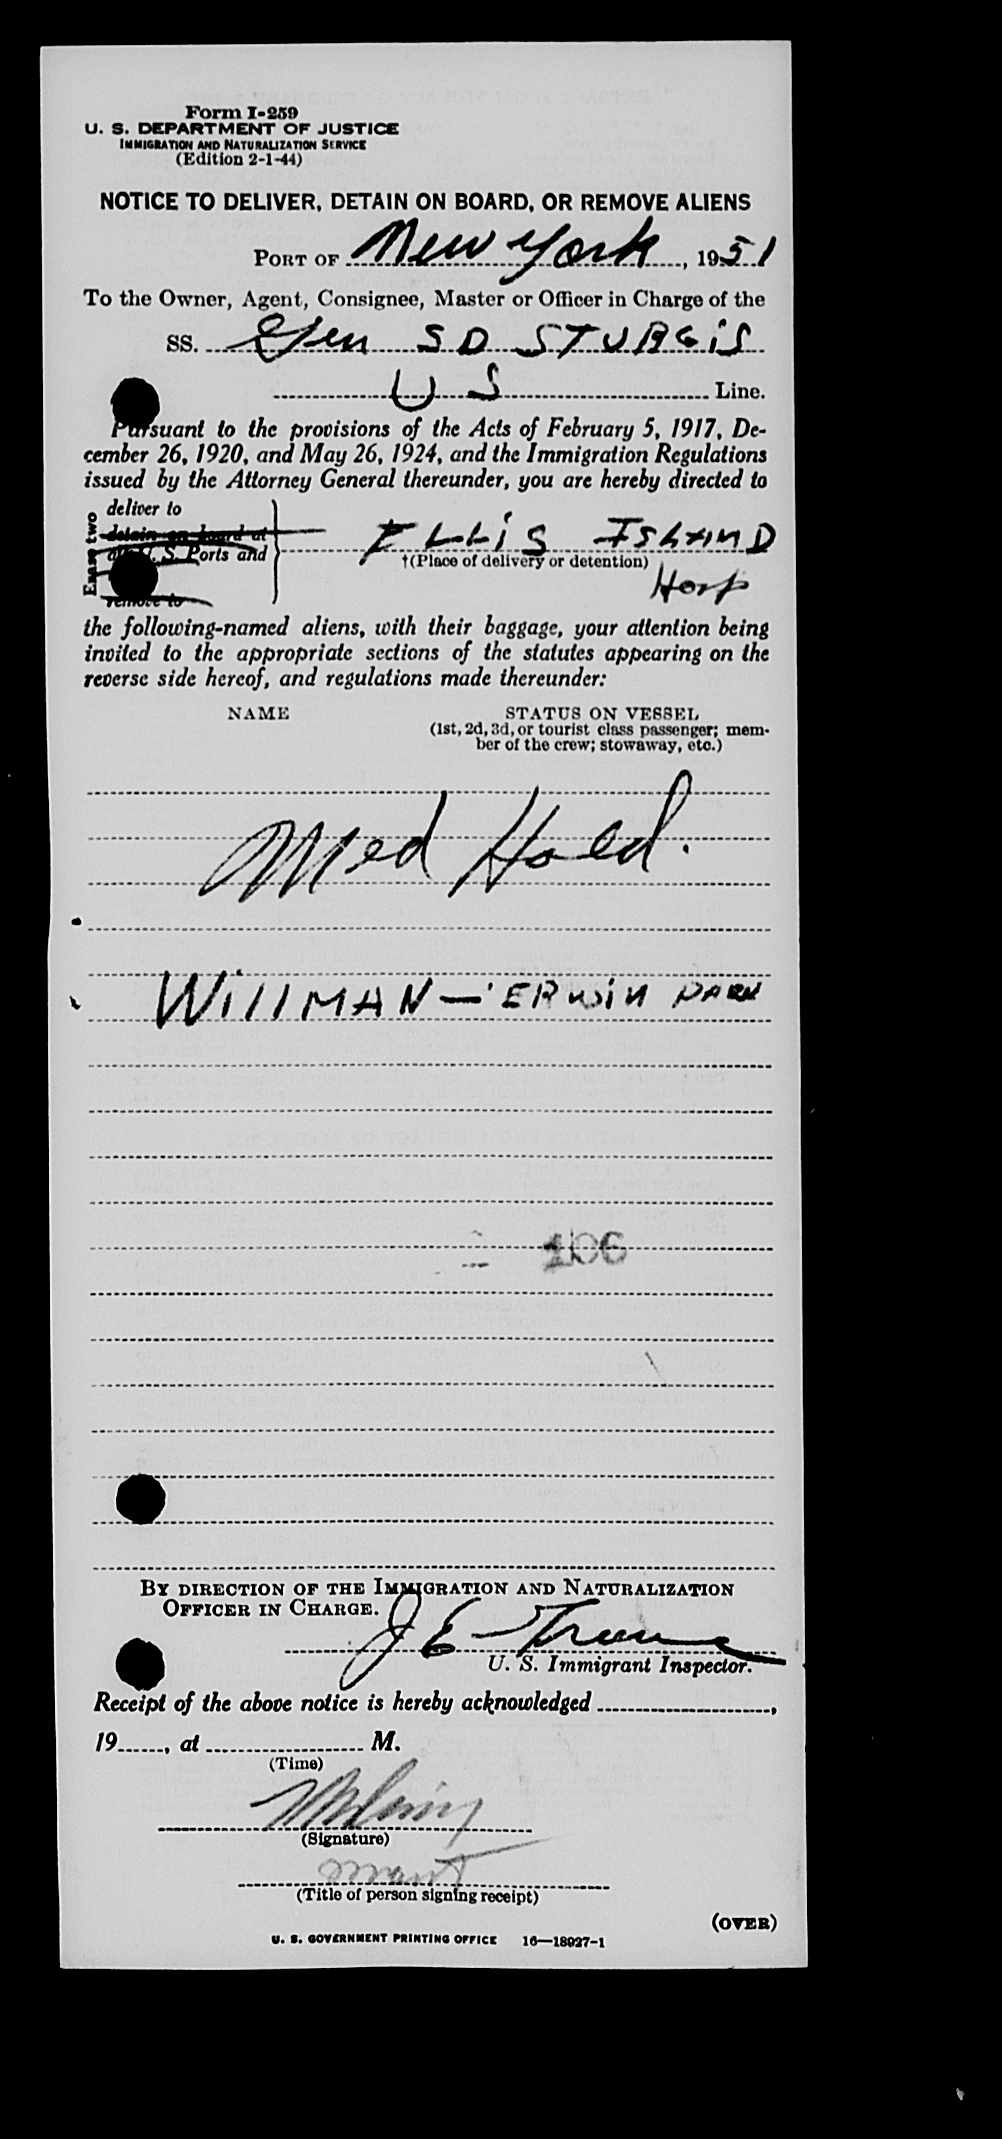 Form I-259
U. S. DEPARTMENT OF JUSTICE
IMMIGRATION AND NATURALIZATION SERVICE
(Edition 2-1-44)
NOTICE TO DELIVER, DETAIN ON BOARD, OR REMOVE ALIENS
PORT OF New York, 1951
To the Owner, Agent, Consignee, Master or Officer in Charge of the
SS. Gen SD STURGIS
US Line.
Pursuant to the provisions of the Acts of February 5, 1917, De-
cember 26, 1920, and May 26, 1924, and the Immigration Regulations
issued by the Attorney General thereunder, you are hereby directed to
Erase two
deliver to
detain on board at
all U.S. Ports and
remove to
ELLIS ISLAND
†(Place of delivery or detention)
Hosp
the following-named aliens, with their baggage, your attention being
invited to the appropriate sections of the statutes appearing on the
reverse side hereof, and regulations made thereunder:
NAME STATUS ON VESSEL
(1st, 2d, 3d, or tourist class passenger; mem-
ber of the crew; stowaway, etc.)
Med Hold.
WillMAN - ERWIN
106
BY DIRECTION OF THE IMMIGRATION AND NATURALIZATION
OFFICER IN CHARGE.
J E
U. S. Immigrant Inspector.
Receipt of the above notice is hereby acknowledged ,
19 , at M.
(Time)
(Signature)
(Title of person signing receipt)
(OVER)
U. S. GOVERNMENT PRINTING OFFICE 16—18027-1